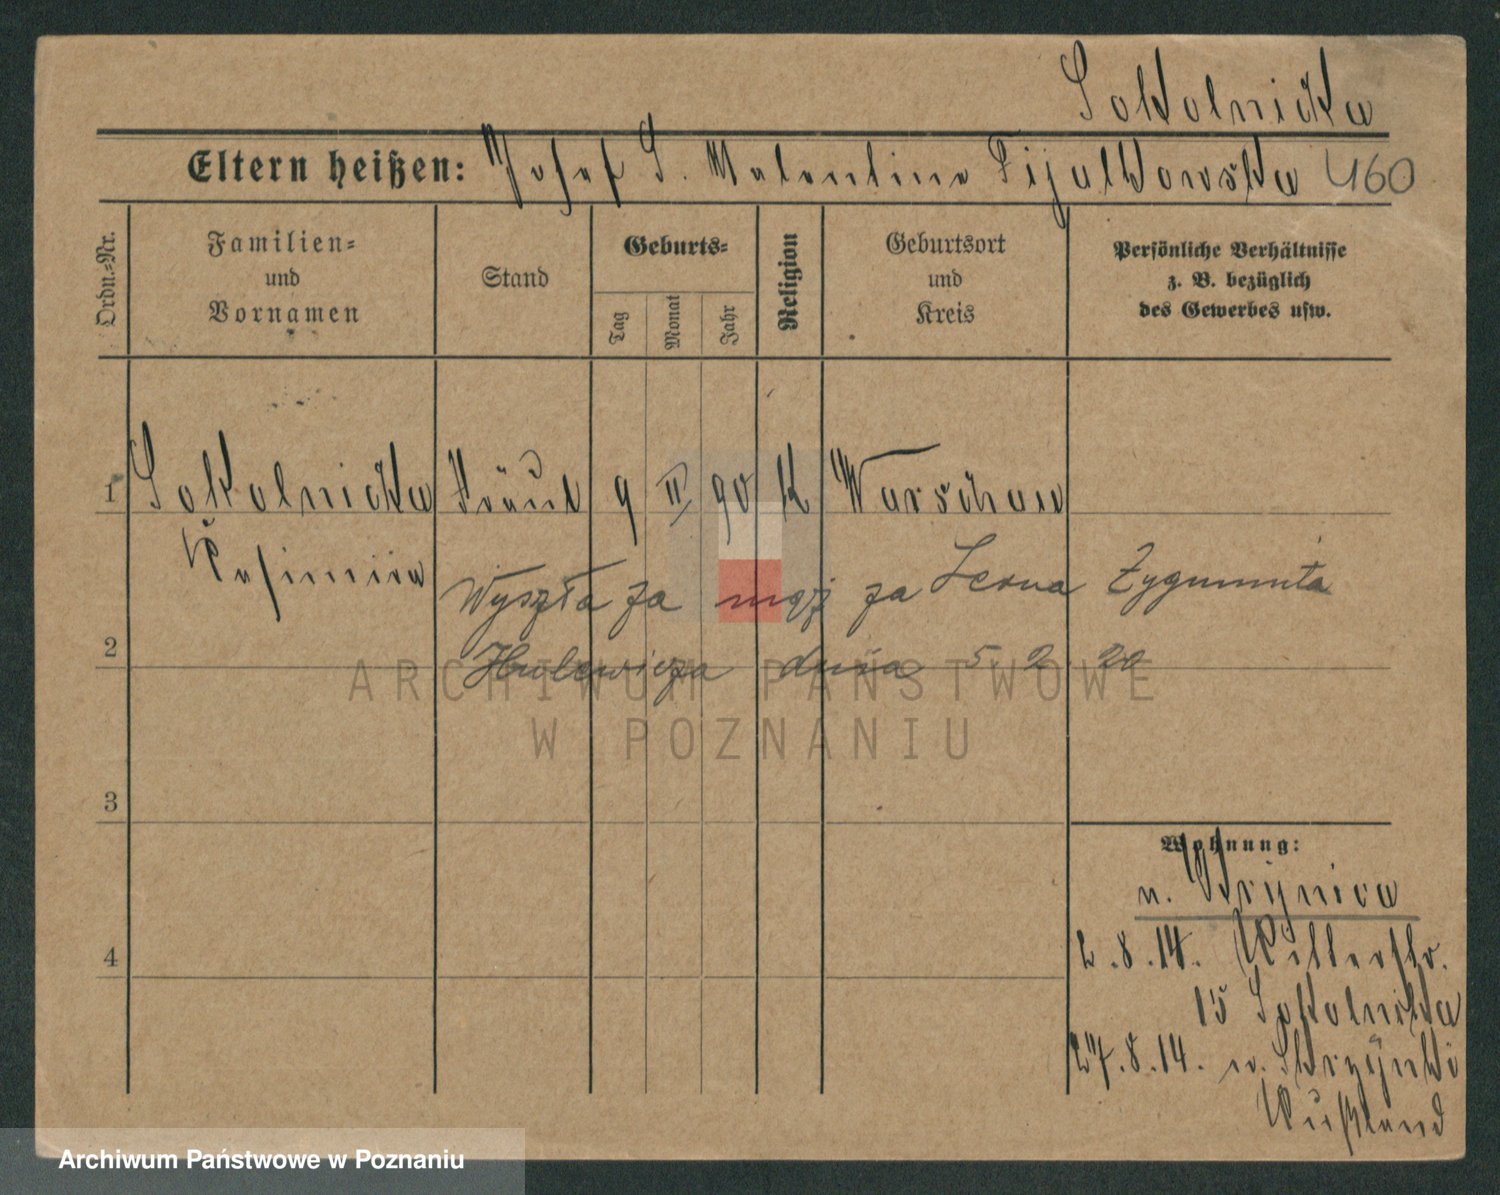 Sokolnicka
Eltern heißen: Josef S. Valentine Fijalkowska 460
Ordn.=Nr.
Familien=
und
Vornamen
Stand
Geburts=
Tag
Monat
Jahr
Religion
Geburtsort
und
Kreis
Persönliche Verhältnisse
z. B. bezüglich
des Gewerbes usw.
1 Sokolnicka Fräul 9 II 90 K Warschau
Kasimira
Wyszła za mąż za Leona Zygmunta
2 Hulewicza dnia 5 2 20
ARCHIWUM PAŃSTWOWE
W POZNANIU
3
4
Wohnung:
n. Krynica
2.8.14. Ritterstr.
15 Sokolnicka
27.8.14. n. Skrzynki
Rußland
Archiwum Państwowe w Poznaniu